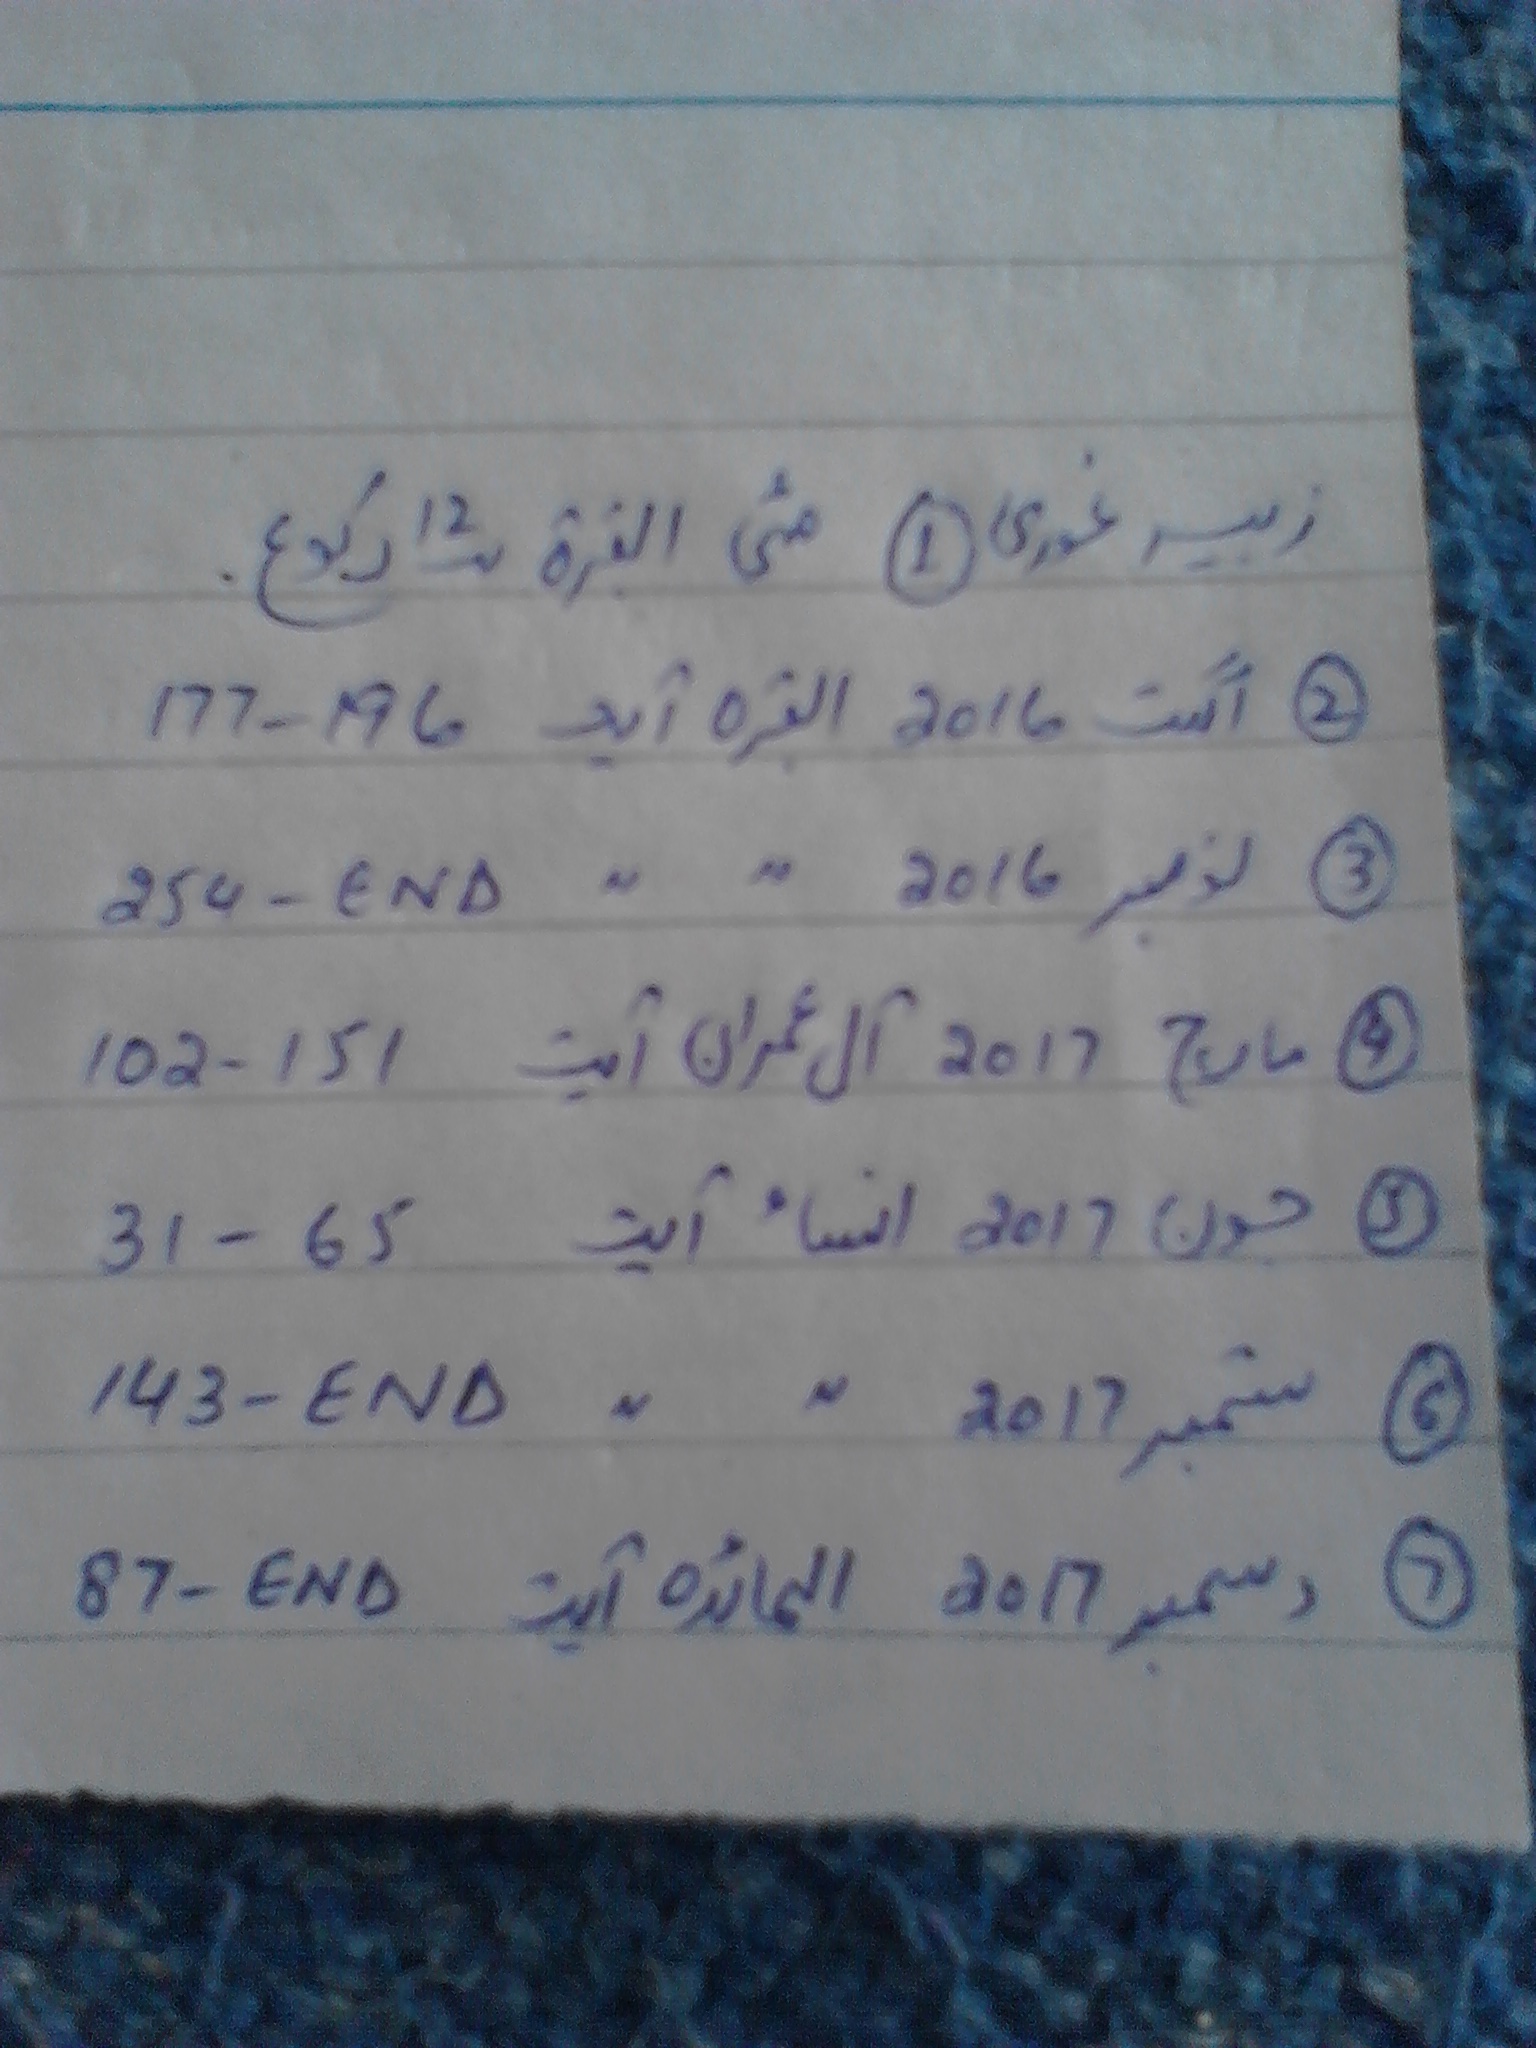 زبیر غوری ① مئی البقرۃ 12 رکوع.
② اگست 2016 البقرہ آیت 177-196
③ نومبر 2016 〃 〃 254-END
④ مارچ 2017 آل عمران آیت 102-151
⑤ جون 2017 النساء آیت 31-65
⑥ ستمبر 2017 〃 〃 143-END
⑦ دسمبر 2017 المائدہ آیت 87-END